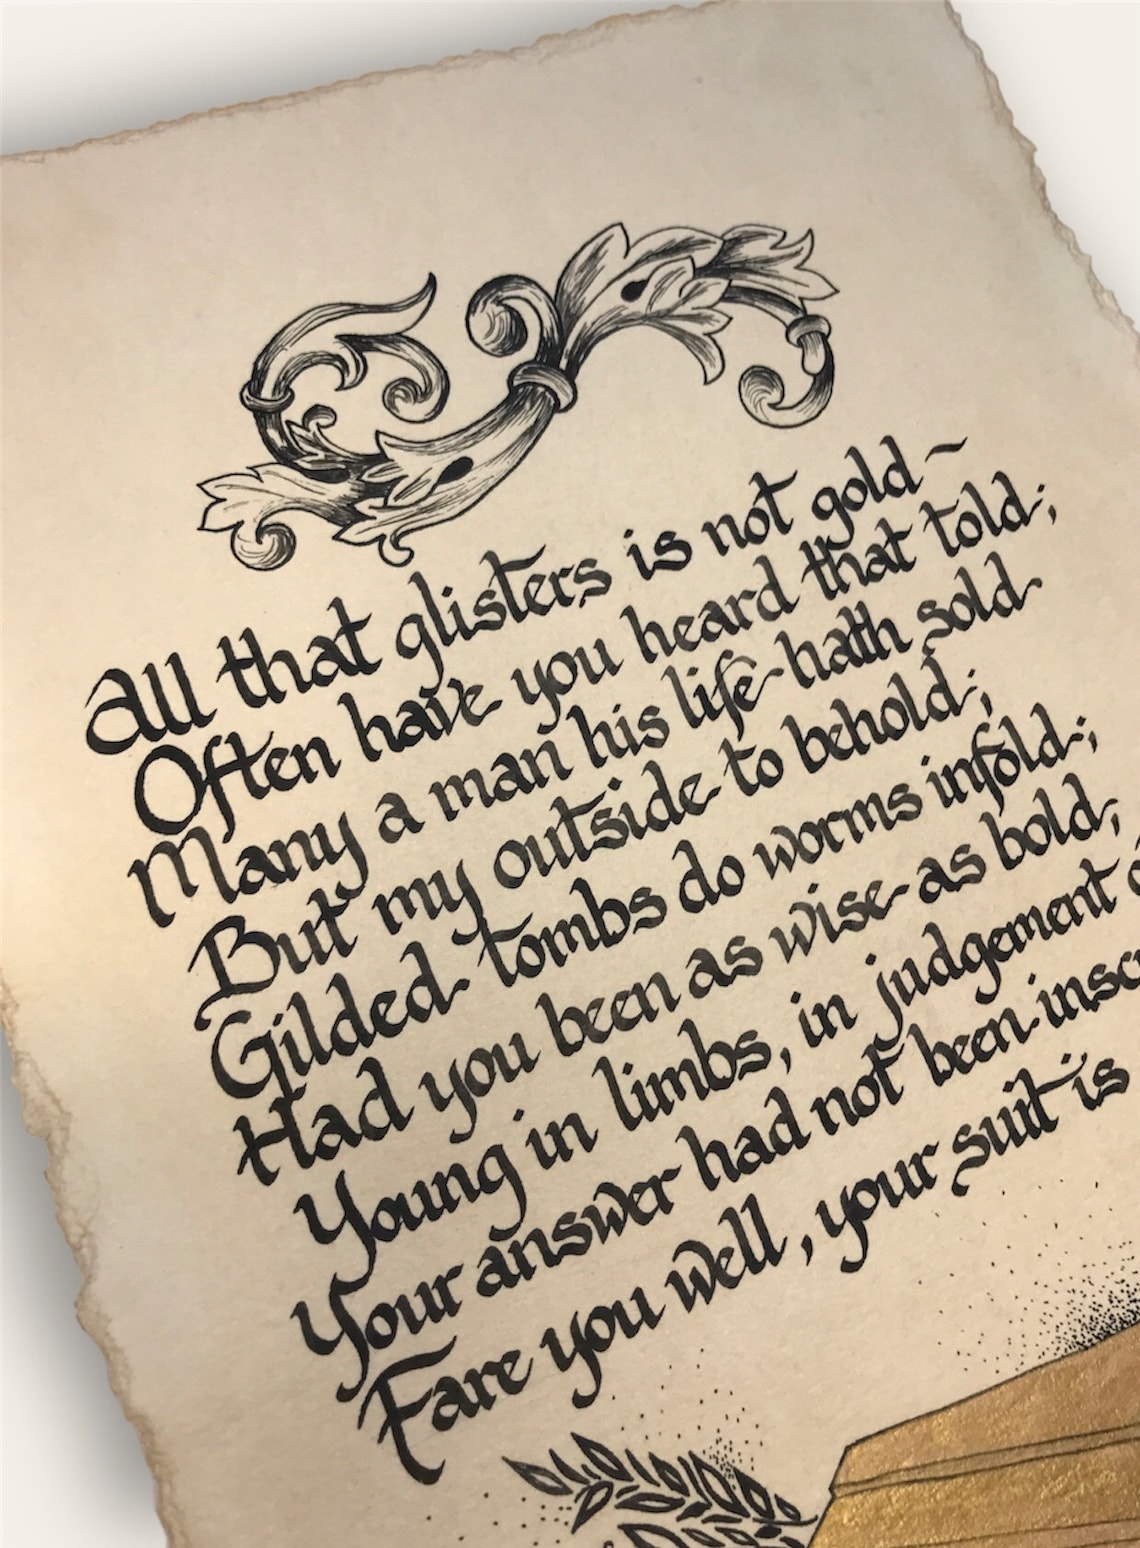 All that glisters is not gold~
Often have you heard that told;
Many a man his life hath sold
But my outside to behold;
Gilded tombs do worms infold;
Had you been as wise as bold,
Young in limbs, in judgement
Your answer had not been
Fare you well, your suit is